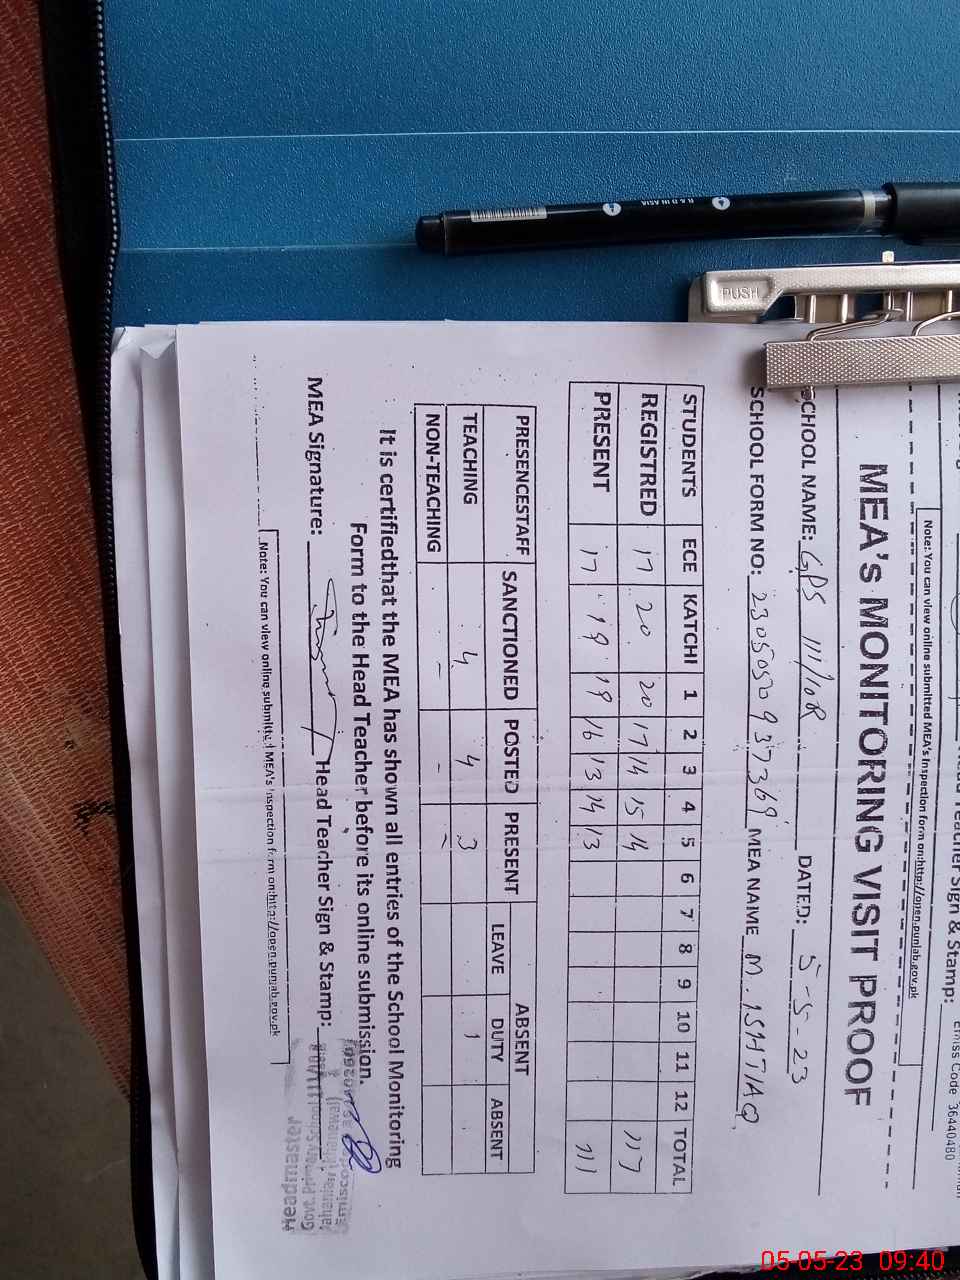 Teacher Sign & Stamp:
Emiss Code 36440480
Note: You can view online submitted MEA's Inspection form on:http://open.punjab.gov.pk
MEA'S MONITORING VISIT PROOF
SCHOOL NAME: GPS 111/10R DATED: 5-5-23
SCHOOL FORM NO: MEA NAME M. ISHTIAQ
STUDENTS ECE KATCHI 1 2 3 4 5 6 7 8 9 10 11 12 TOTAL
REGISTRED 17 20 20 17 14 15 14 117
PRESENT 17 19 19 16 13 14 13 111
PRESENCESTAFF SANCTIONED POSTED PRESENT ABSENT
LEAVE DUTY ABSENT
TEACHING 4 4 3 1
NON-TEACHING - - -
It is certifiedthat the MEA has shown all entries of the School Monitoring
Form to the Head Teacher before its online submission.
MEA Signature: Head Teacher Sign & Stamp:
Headmaster
Note: You can view online submitted MEA's Inspection form on:http://open.punjab.gov.pk
PUSH
R & D IN ASIA
05-05-23 09:40